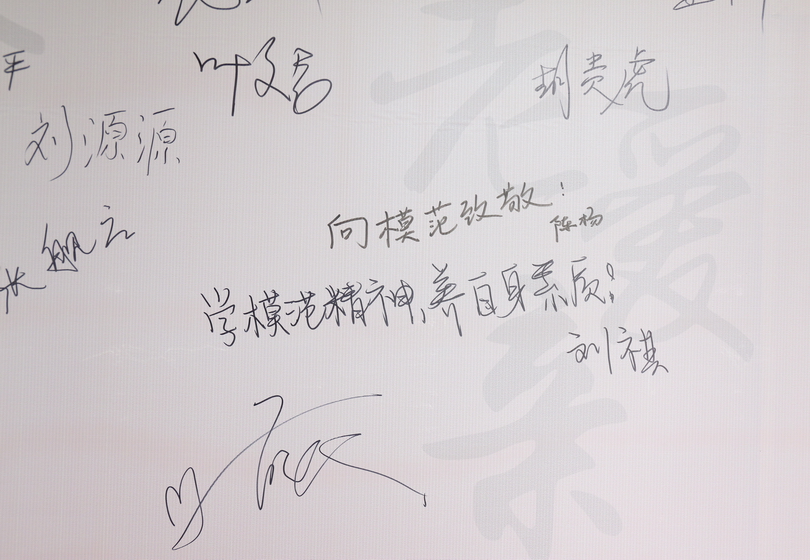 平
叶文秀
胡贵虎
刘源源
向模范致敬!
陈杨
航云
学模范精神,养自身素质!
刘祺
老
爱
亲